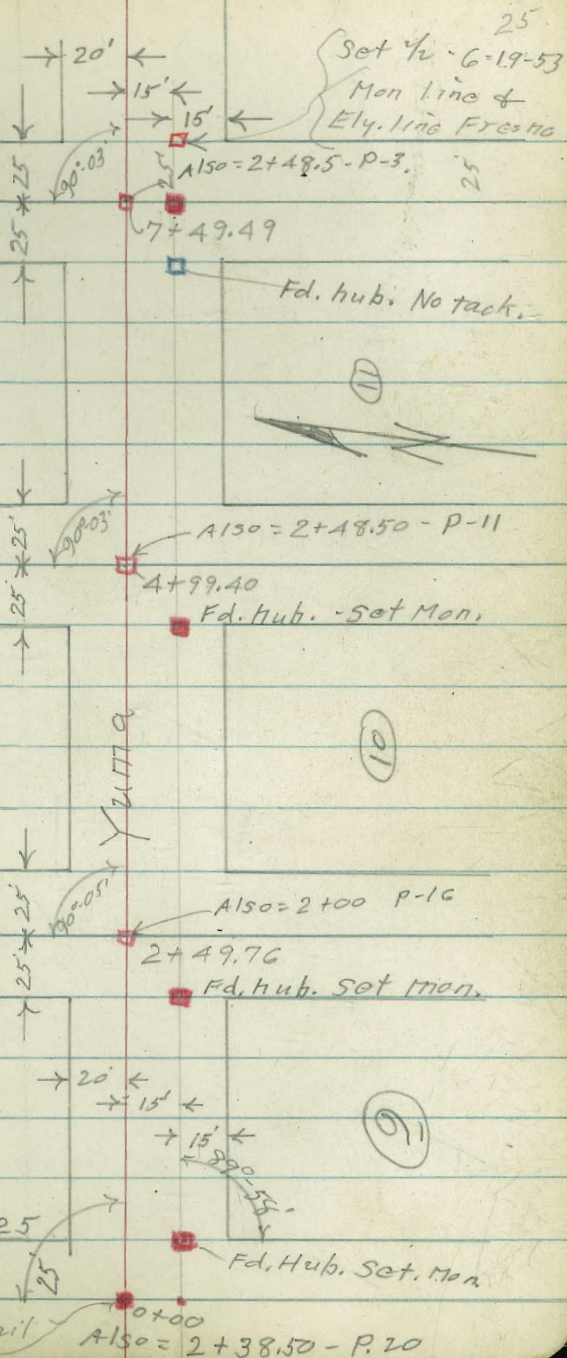 25
20'
Set 1/2 - 6-19-53
15'
Mon line &
15'
Ely. line Fresno
25
90°-03'
25'
Also = 2+48.5 - P-3.
25
25
7+49.49
Fd. hub. No tack.
11
25'
90°-03'
Also = 2+48.50 - P-11
25'
4+99.40
Fd. hub. - Set Mon.
Yuma
10
25'
90°-05'
Also = 2+00 P-16
25'
2+49.76
Fd. hub. Set mon.
20'
15'
9
15'
25
25
Fd. Hub. Set. Mon
0+00
Also = 2+38.50 - P. 20